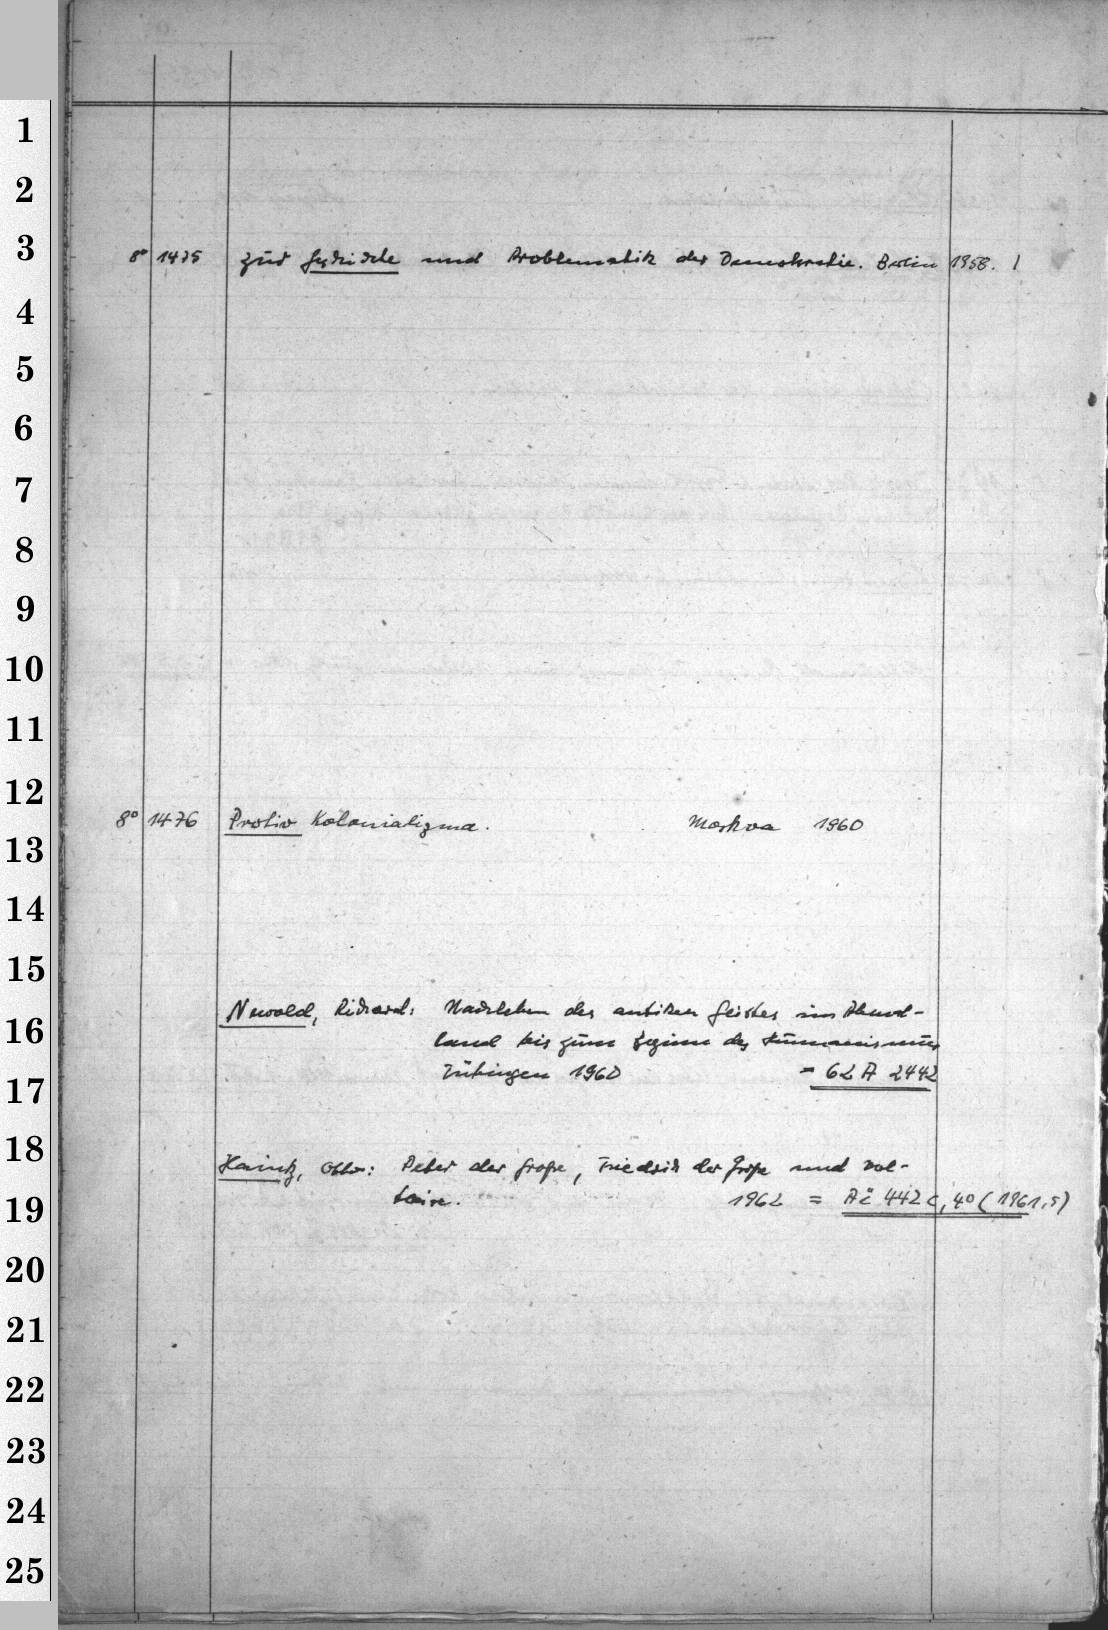 1
2
3
8° 1475 Zur Geschichte und Problematik der Demokratie. Berlin 1958. 1
4
5
6
7
8
9
10
11
12
8° 1476 Protiv Kolonializma. Moskva 1960
13
14
15
Newald, Richard: Nachleben des antiken Geistes im Abend-
16
land bis zum Beginn des Humanismus
Tübingen 1960 = 62 A 2442
17
18
Haintz, Otto: Peter der Große, Friedrich der Große und Vol-
19
taire. 1962 = Ač 442 c, 4° (1961,5)
20
21
22
23
24
25